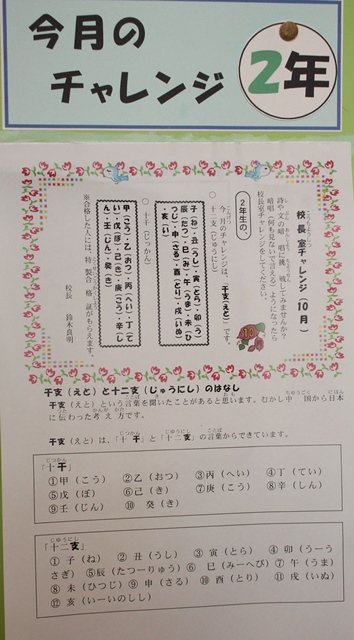 今月の
チャレンジ
2年
校長室チャレンジ(10月)
詩や文の暗唱に挑戦してみませんか?
暗唱(何も見ないで言える)ようになったら
校長室チャレンジをしてください。
2年生の
今月のチャレンジは、干支(えと)です。
○十二支(じゅうにし)
子(ね)・丑(うし)・寅(とら)・卯(う)・
辰(たつ)・巳(み)・午(うま)・未(ひ
つじ)・申(さる)・酉(とり)・戌(いぬ)
・亥(い)
○十干(じっかん)
甲(こう)・乙(おつ)・丙(へい)・丁(て
い)・戊(ぼ)・己(き)・庚(こう)・辛(し
ん)・壬(じん)・癸(き)
※合格した人には特製合格証がもらえます。
校長 鈴木良明
干支(えと)と十二支(じゅうにし)のはなし
干支(えと)という言葉を聞いたことがあると思います。むかし中国から日本
に伝わった考え方です。
干支(えと)は、「十干」と「十二支」の言葉からできています。
「十干」
①甲(こう) ②乙(おつ) ③丙(へい) ④丁(てい)
⑤戊(ぼ) ⑥己(き) ⑦庚(こう) ⑧辛(しん)
⑨壬(じん) ⑩癸(き)
「十二支」
①子(ね) ②丑(うし) ③寅(とら) ④卯(うーう
さぎ) ⑤辰(たつーりゅう) ⑥巳(みーへび) ⑦午(うま)
⑧未(ひつじ) ⑨申(さる) ⑩酉(とり) ⑪戌(いぬ)
⑫亥(いーいのしし)